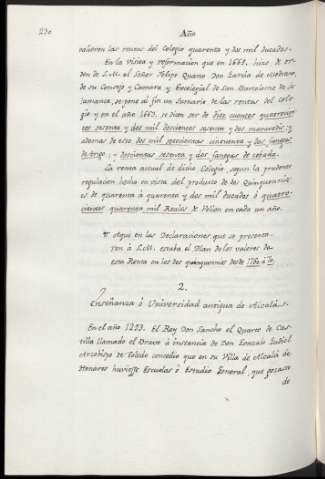 230
Año
valiesen las rentas del Colegio quarenta y dos mil ducados.
En la visita y reformacion que en 1663. hizo de or-
den de S.M. el Señor Felipe Quarto Don Garcia de Medrano,
de su Consejo y Camara y Excolegial de San Bartolome de Sa-
lamanca, se pone al fin un Sumario de las rentas del Cole-
gio y en el año 1663. se dicen ser de diez cuentos quatrocien-
tos sesenta y dos mil doscientos sesenta y dos maravedis: y
ademas de esto dos mil setecientas cincuenta y dos fanegas
de trigo; y doscientas sesenta y dos fanegas de cebada.
La renta actual de dicho Colegio, segun la prudente
regulacion hecha en vista del producto de los Quinquenios
es de quarenta à quarenta y dos mil ducados ò quatro-
cientos quarenta mil Reales de Vellon en cada un año.
Aqui en las Declaraciones que se presenta-
ron à S.M. estaba el Plan de los valores de
esta Renta en los dos quinquenios desde
2.
Enseñanza ò Universidad antigua de Alcalá.
En el año 1293. El Rey Don Sancho el Quarto de Cas-
tilla llamado el Bravo à instancia de Don Gonzalo Gudiel
Arzobispo de Toledo concedio que en su Villa de Alcalá de
Henares huviesse Escuelas ò Estudio General, que gozasse
de